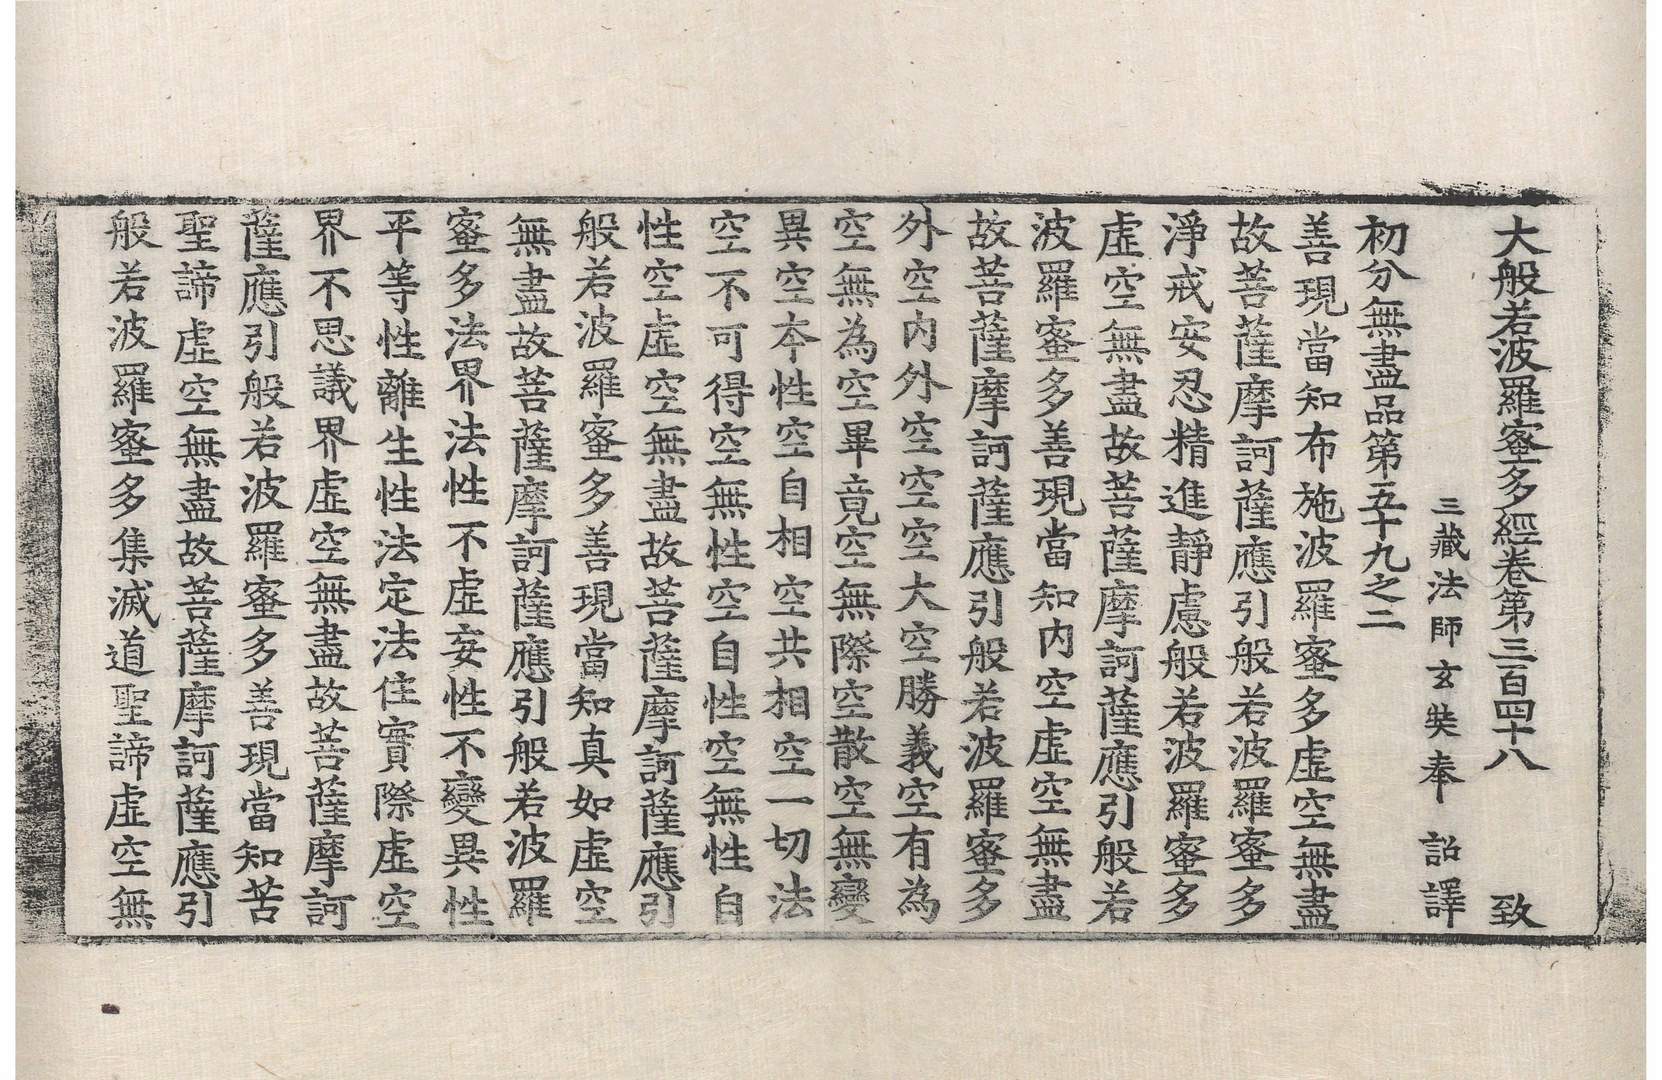 大般若波羅蜜多經卷第三百四十八 致
三藏法師玄奘奉 詔譯
初分無盡品第五十九之二
善現當知布施波羅蜜多虛空無盡
故菩薩摩訶薩應引般若波羅蜜多
淨戒安忍精進靜慮般若波羅蜜多
虛空無盡故菩薩摩訶薩應引般若
波羅蜜多善現當知內空虛空無盡
故菩薩摩訶薩應引般若波羅蜜多
外空內外空空空大空勝義空有為
空無為空畢竟空無際空散空無變
異空本性空自相空共相空一切法
空不可得空無性空自性空無性自
性空虛空無盡故菩薩摩訶薩應引
般若波羅蜜多善現當知真如虛空
無盡故菩薩摩訶薩應引般若波羅
蜜多法界法性不虛妄性不變異性
平等性離生性法定法住實際虛空
界不思議界虛空無盡故菩薩摩訶
薩應引般若波羅蜜多善現當知苦
聖諦虛空無盡故菩薩摩訶薩應引
般若波羅蜜多集滅道聖諦虛空無